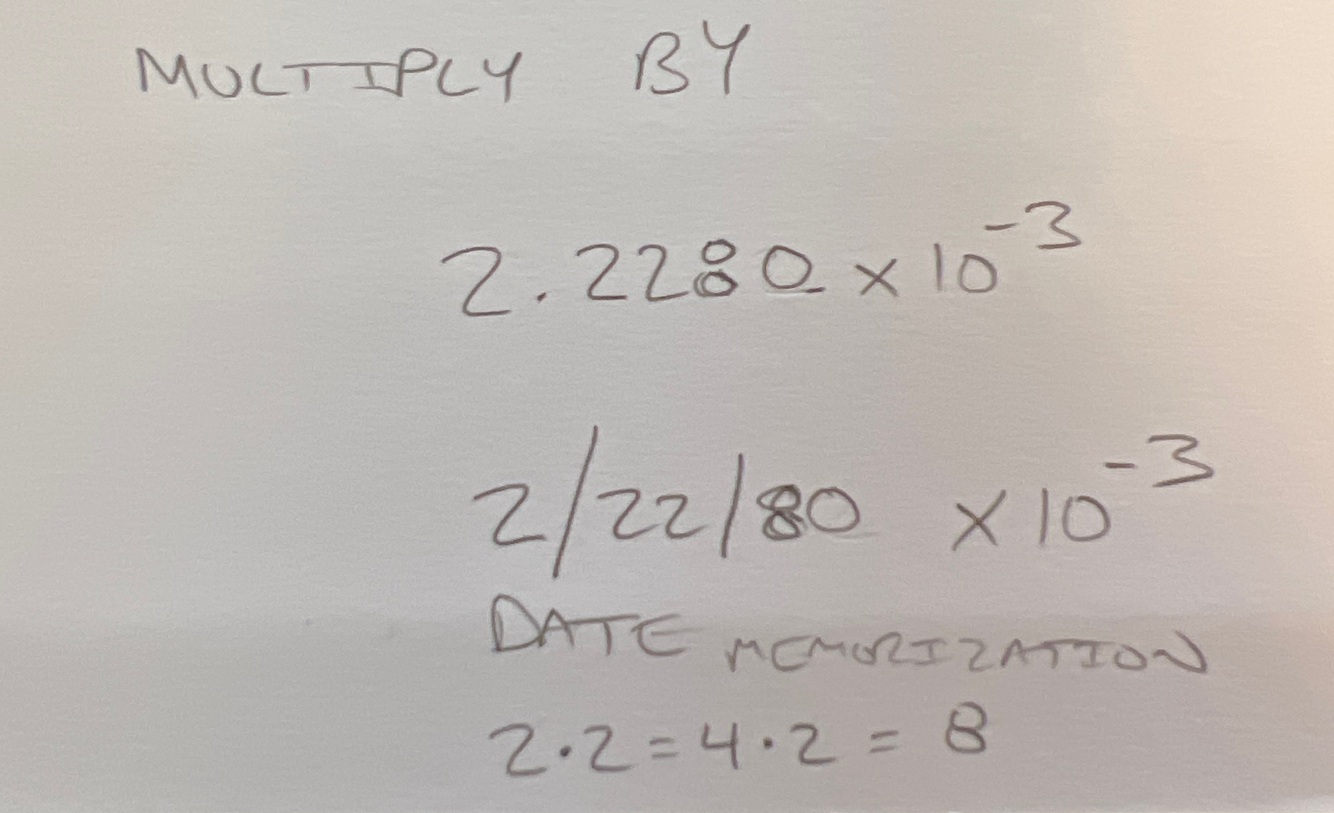 MULTIPLY BY
2.2280 x 10⁻³
2/22/80 x 10⁻³
DATE MEMORIZATION
2·2=4·2 = 8